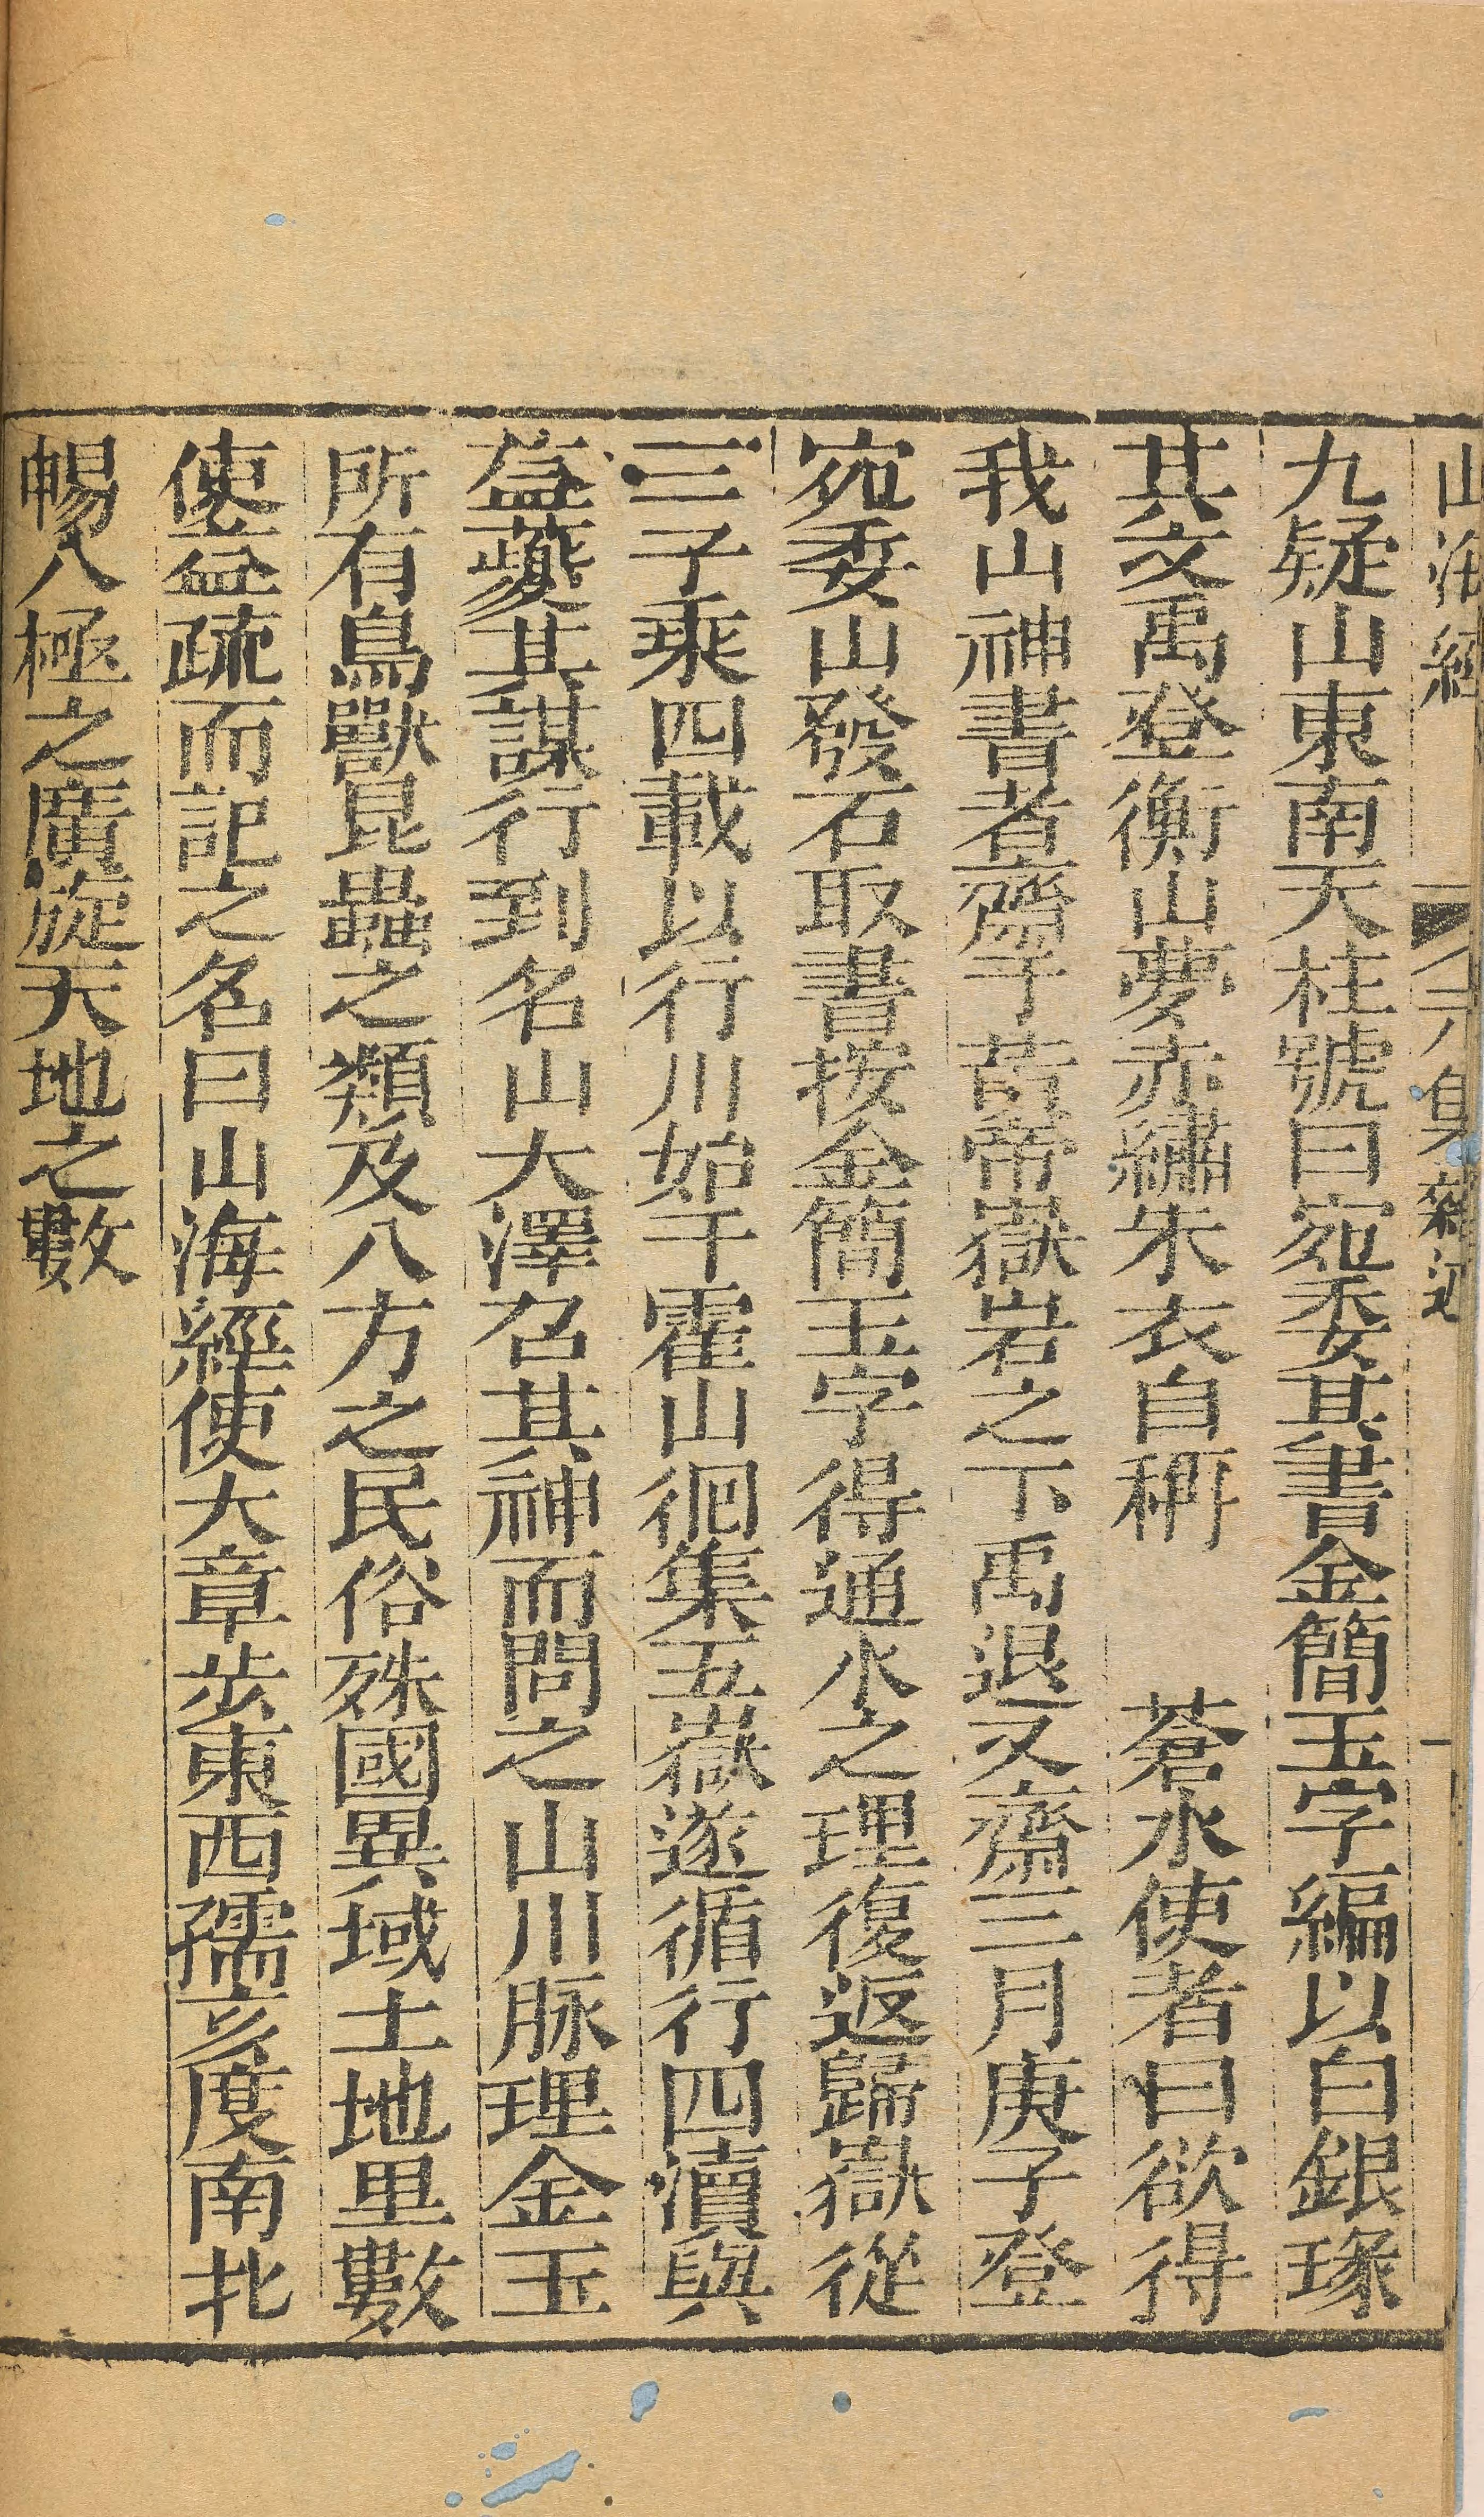 山海經 集 雜述 一
九疑山東南天柱號曰宛委其書金簡玉字編以白銀瑑
其文禹登衡山夢赤繡朱衣自稱 蒼水使者曰欲得
我山神書者齋于黃帝嶽岩之下禹退又齋三月庚子登
宛委山發石取書按金簡玉字得通水之理復返歸嶽從
三子乘四載以行川始于霍山徊集五嶽遂循行四瀆與
益夔其謀行到名山大澤召其神而問之山川脉理金玉
所有鳥獸昆蟲之類及八方之民俗殊國異域土地里數
使益疏而記之名曰山海經使大章步東西孺亥度南北
暢八極之廣旋天地之數